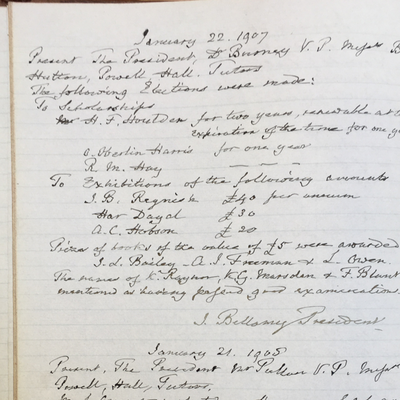 January 22. 1907
Present The President, Dr Burney V. P. Messrs B
Hutton, Powell Hall. Tutors
The following Elections were made:
To Scholarships
H. F. Houlden for two years, renewable at th
expiration of the time for one y
O. Oberlin Harris for one year
R. M. Hay
To Exhibitions of the following amounts
J. B. £40 per annum
Har Dayal £30
A. C. Hobson £20
Prizes of books of the value of £5 were awarded
J. L. Bailey - A. J. Freeman & L. Owen
The names of K. Raynor, K. G. Marsden & F. Blunt
mentioned as having passed good examinations.
J. Bellamy President
January 21. 1908
Present, The President Mr Pullan V. P. Messrs
Powell, Hall, Tutors,